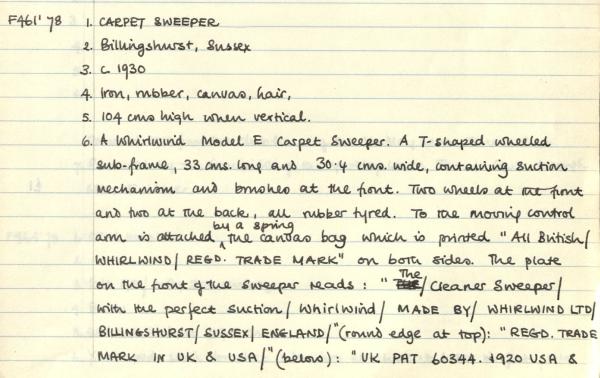 F461' 78 1. CARPET SWEEPER
2. Billingshurst, Sussex
3. c. 1930
4. Iron, rubber, canvas, hair,
5. 104 cms high when vertical.
6. A Whirlwind Model E Carpet Sweeper. A T-shaped wheeled
sub-frame, 33 cms. long and 30.4 cms. wide, containing suction
mechanism and brushes at the front. Two wheels at the front
and two at the back, all rubber tyred. To the moving control
by a spring
arm is attached ^ the canvas bag which is printed "All British/
WHIRLWIND/ REGD. TRADE MARK" on both sides. The plate
on the front of the sweeper reads: " The/ Cleaner Sweeper/
with the perfect suction/ Whirlwind/ MADE BY/ WHIRLWIND LTD/
BILLINGSHURST/ SUSSEX/ ENGLAND/ "(round edge at top): "REGD. TRADE
MARK IN UK & USA/ "(below): "UK PAT 60344. 1920 USA &